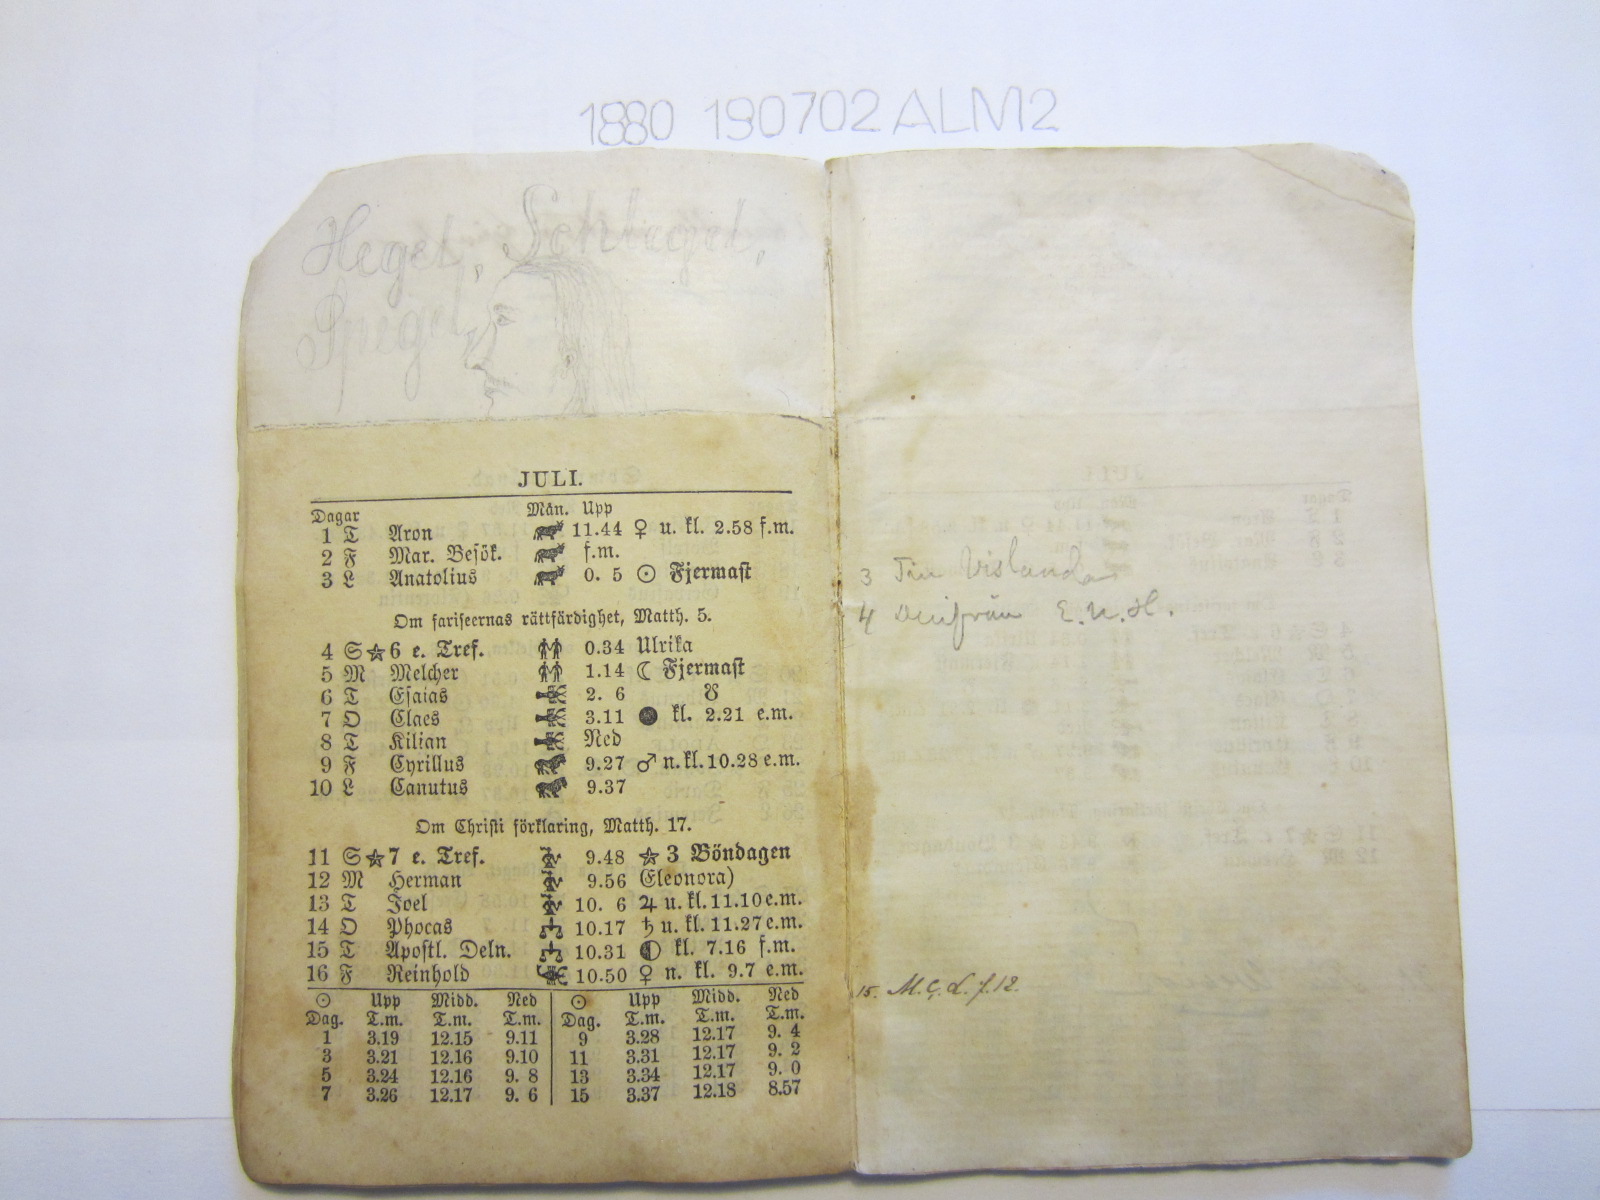 1880 190702 ALM2
Hegel, Schlegel,
Spegel,
JULI.
Dagar Mån. Upp
1 T Aron 11.44 ♀ u. kl. 2.58 f.m.
2 F Mar. Besök. f.m.
3 L Anatolius 0. 5 ☉ Fjermast
Om fariseernas rättfärdighet, Matth. 5.
4 S ☆ 6 e. Tref. 0.34 Ulrika
5 M Melcher 1.14 ☾ Fjermast
6 T Esaias 2. 6 ☋
7 O Claes 3.11 ● kl. 2.21 e.m.
8 T Kilian Ned
9 F Cyrillus 9.27 ♂ n. kl. 10.28 e.m.
10 L Canutus 9.37
Om Christi förklaring, Matth. 17.
11 S ☆ 7 e. Tref. 9.48 ☆ 3 Böndagen
12 M Herman 9.56 (Eleonora)
13 T Joel 10. 6 ♃ u. kl. 11.10 e.m.
14 O Phocas 10.17 ♄ u. kl. 11.27 e.m.
15 T Apostl. Deln. 10.31 ◐ kl. 7.16 f.m.
16 F Reinhold 10.50 ♀ n. kl. 9.7 e.m.
☉ Upp Midd. Ned ☉ Upp Midd. Ned
Dag. T.m. T.m. T.m. Dag. T.m. T.m. T.m.
1 3.19 12.15 9.11 9 3.28 12.17 9. 4
3 3.21 12.16 9.10 11 3.31 12.17 9. 2
5 3.24 12.16 9. 8 13 3.34 12.17 9. 0
7 3.26 12.17 9. 6 15 3.37 12.18 8.57
3 Vislanda
4 E. u. H.
15. M.C.L. f. 12.